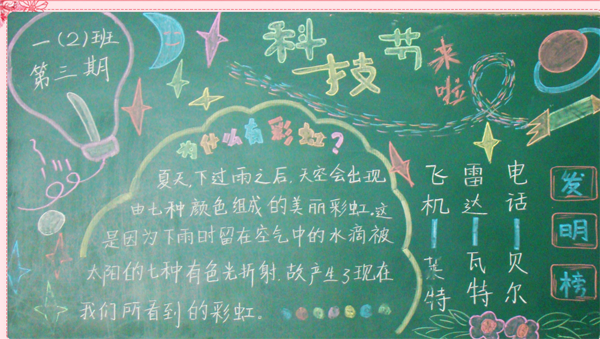 一(2)班
第三期
科技节
来啦
为什么有彩虹?
夏天,下过雨之后,天空会出现
由七种颜色组成的美丽彩虹。这
是因为下雨时留在空气中的水滴被
太阳的七种有色光折射,故产生了现在
我们所看到的彩虹。
发明榜
电话—贝尔
雷达—瓦特
飞机—莱特